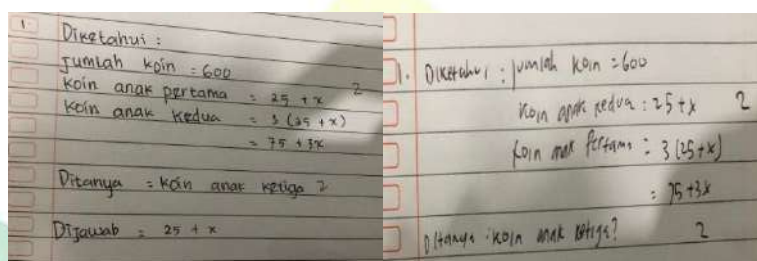 1.
Diketahui :
Jumlah koin = 600
Koin anak pertama = 25 + x 2
Koin anak kedua = 3 (25 + x)
= 75 + 3x
Ditanya = koin anak ketiga ?
Dijawab = 25 + x
1. Diketahui : jumlah koin = 600
koin anak kedua : 25 + x 2
koin anak pertama = 3 (25 + x)
= 75 + 3x
Ditanya : koin anak ketiga? 2